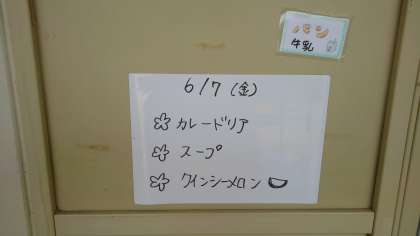 パン
牛乳
6/7(金)
カレードリア
スープ
クインシーメロン